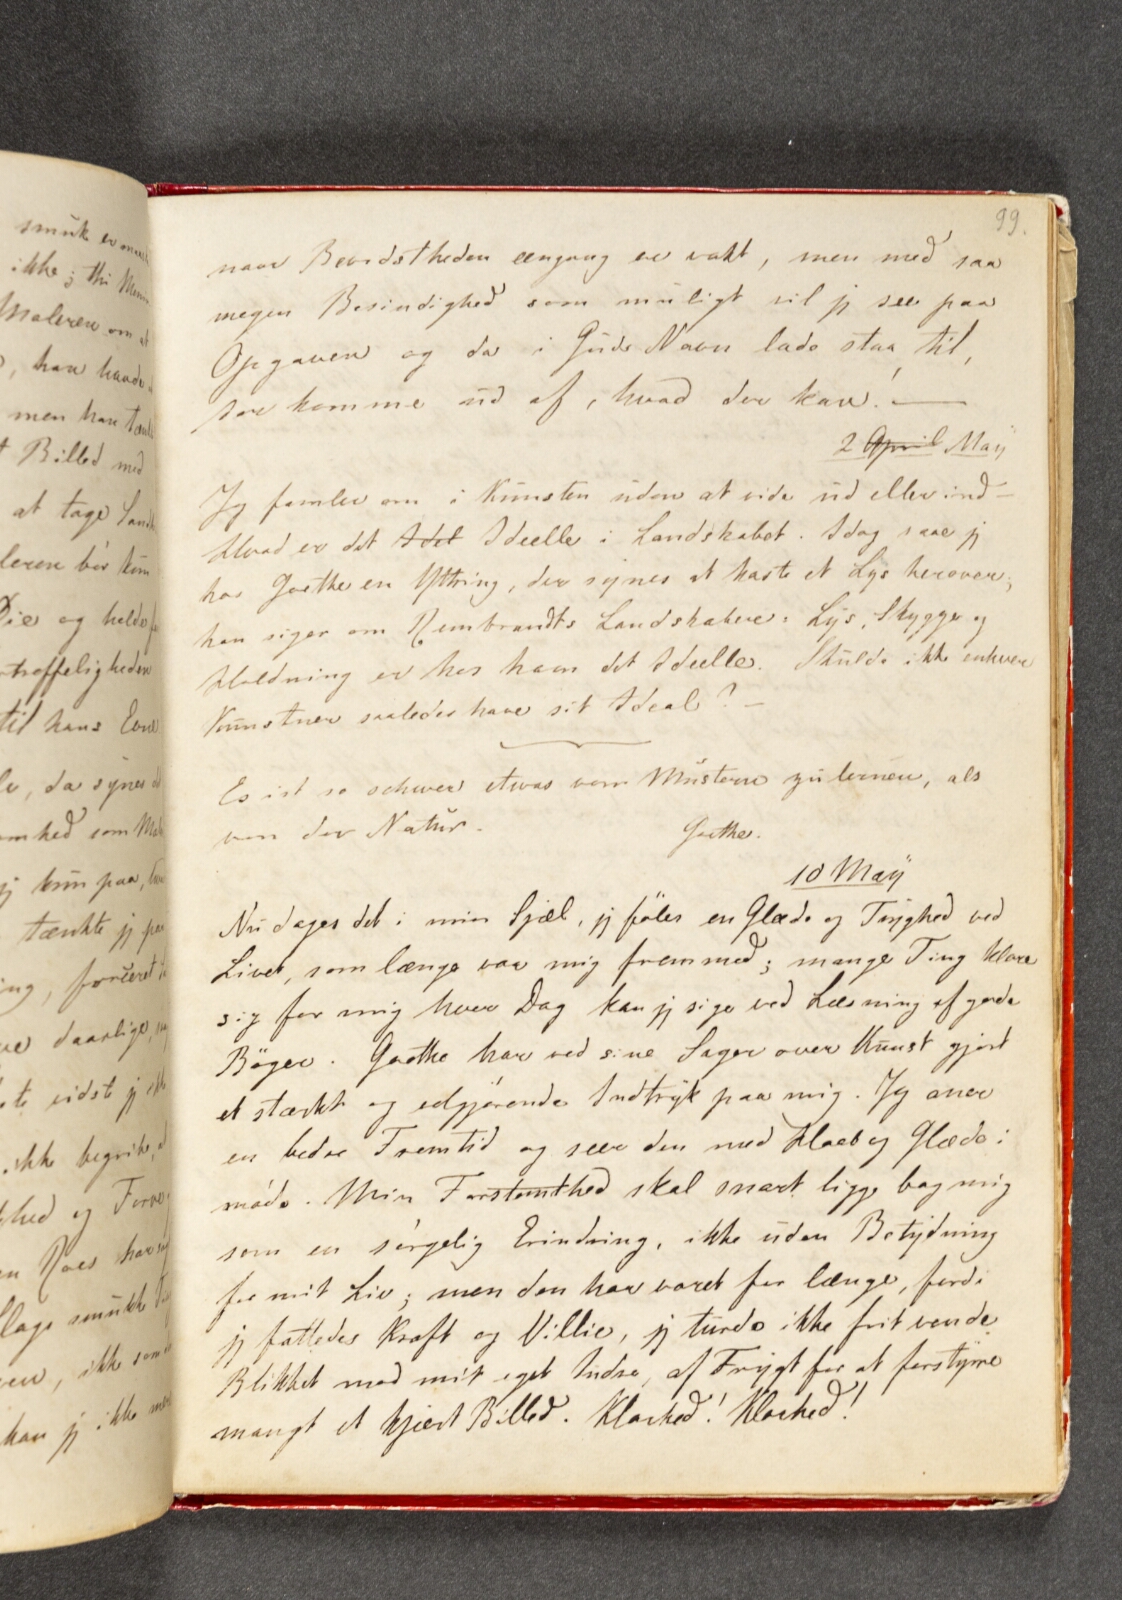 smuk er
ikke; thi
Maleren om at
, han havde
men han
Billed med
at tage
leren bör kun
og holde
træffeligheden
til hans Evne
, da synes
som
jeg kun paa,
tænkte jeg
daarlige,
vidste jeg
ikke begribe,
hed og
Roes har
slags smukke
, ikke som
kan jeg ikke
99.
naar Bevidstheden eengang er vakt, men med saa
megen Besindighed som muligt vil jeg see paa
Opgaven og da i Guds Navn lade staa til,
for komme ud af, hvad der kan! —
2 April Maÿ
Jeg famler om i Kunsten uden at vide ud eller ind —
Hvad er det Idel Ideelle i Landskabet. Idag saae jeg
hos Goethe en Yttring, der synes at kaste et Lys herover;
han siger om Rembrandts Landskabere: Lys, Skygge og
Holdning er hos ham det Ideelle. Skulde ikke enhver
Kunstner saaledes have sit Ideal? —
Es ist so schwer etwas vom Mustern zu lernen, als
von der Natur.
Goethe.
10 Maÿ
Nu dages det i min Sjæl, jeg föler en Glæde og Tryghed ved
Livet, som længe var mig fremmed; mange Ting klare
sig for mig hver Dag kan jeg sige ved Læsning af gode
Böger. Goethe har ved sine Sager over Kunst gjort
et stærkt og udgjörende Indtryk paa mig. Jeg aner
en bedre Fremtid og seer den med Haab og Glæde i
möde. Min Forstemthed skal snart ligge bag mig
som en sörgelig Erindring, ikke uden Betydning
for mit Liv; men den har varet for længe, fordi
jeg fattedes Kraft og Villie, jeg turde ikke frit vende
Blikket mod mit eget Indre, af Frygt for at forstyrre
mangt et kjært Billed. Klarhed! Klarhed!